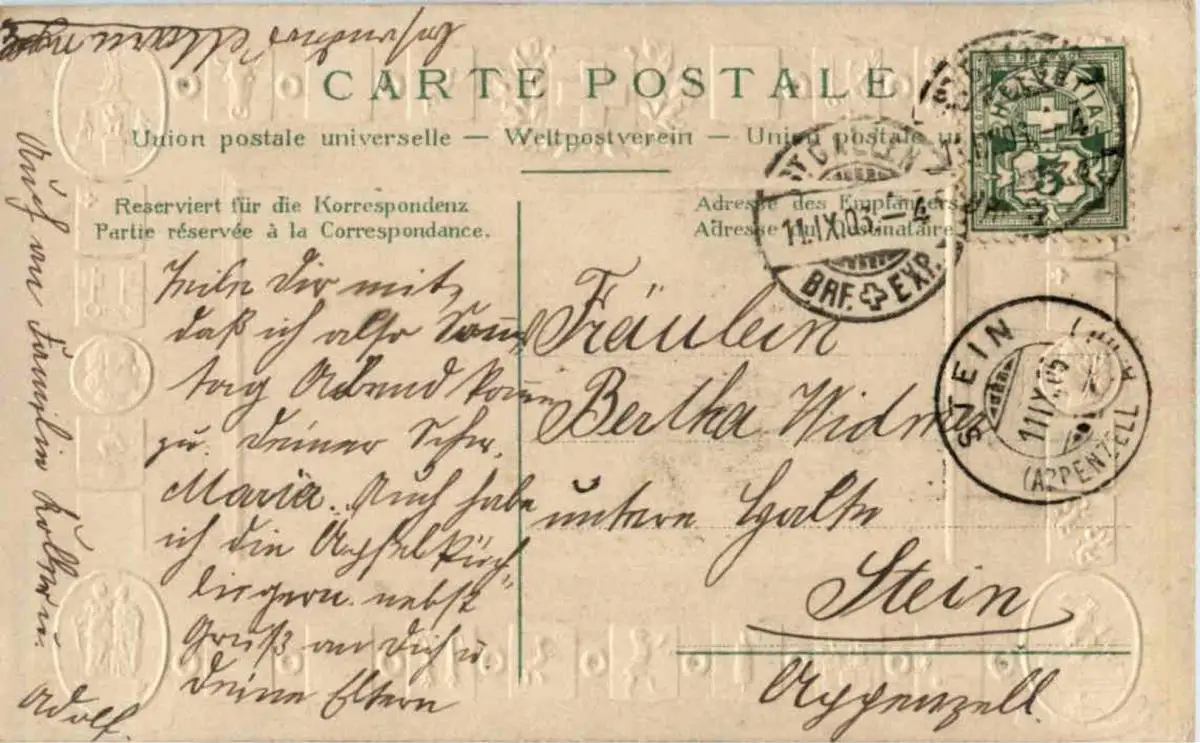 CARTE POSTALE
Union postale universelle — Weltpostverein — Union postale
Reserviert für die Korrespondenz
Partie réservée à la Correspondance.
Adresse des Empfängers
Adresse du destinataire
HELVETIA
5
ST. GALLEN
11.IX.05.–4
BRF. EXP.
STEIN
11.IX.05
(APPENZELL)
Teile Dir mit,
daß ich also Sonn
tag Abend komme
zu Deiner Schw.
Maria. Auch habe
ich die Apfelküch-
li gern. nebst
Gruß an Dich u.
Deine Eltern
Auch an Familie Koller u.
Adolf.
Fräulein
Bertha Widmer
untere
Stein
Appenzell.